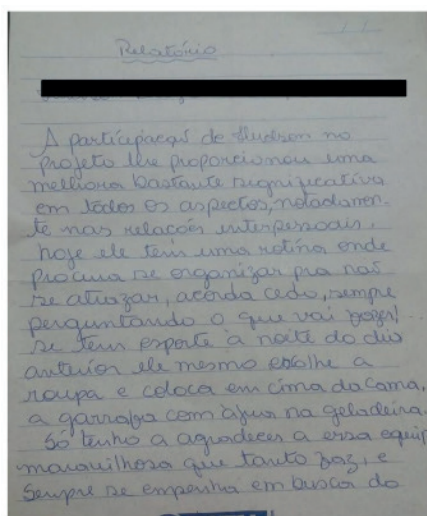 Relatório
A participaçaõ de Hudson no
projeto lhe proporcionou uma
melhora bastante significativa
em todos os aspectos, notadamen-
te nas relações interpessoais,
hoje ele tem uma rotina onde
procura se organizar pra não
se atrazar, acorda cedo, sempre
perguntando o que vai fazer!
se tem esporte à noite do dia
anterior ele mesmo escolhe a
roupa e coloca em cima da cama,
a garrafa com água na geladeira.
Só tenho a agradecer a essa equip
maravilhosa que tanto faz, e
sempre se empenha em busca do